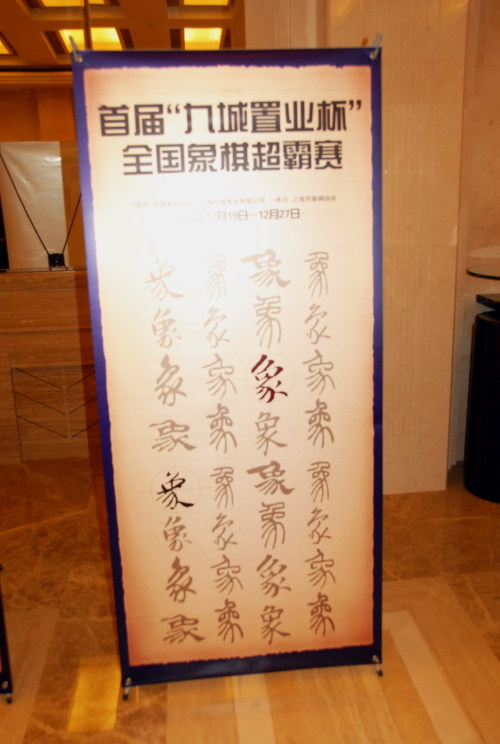 首届“九城置业杯”
全国象棋超霸赛
上海市象棋协会
月19日—12月27日
象 象 象 象
象 象 象 象
象 象 象 象
象 象 象 象
象 象 象 象
象 象 象 象
象 象 象 象
象 象 象 象